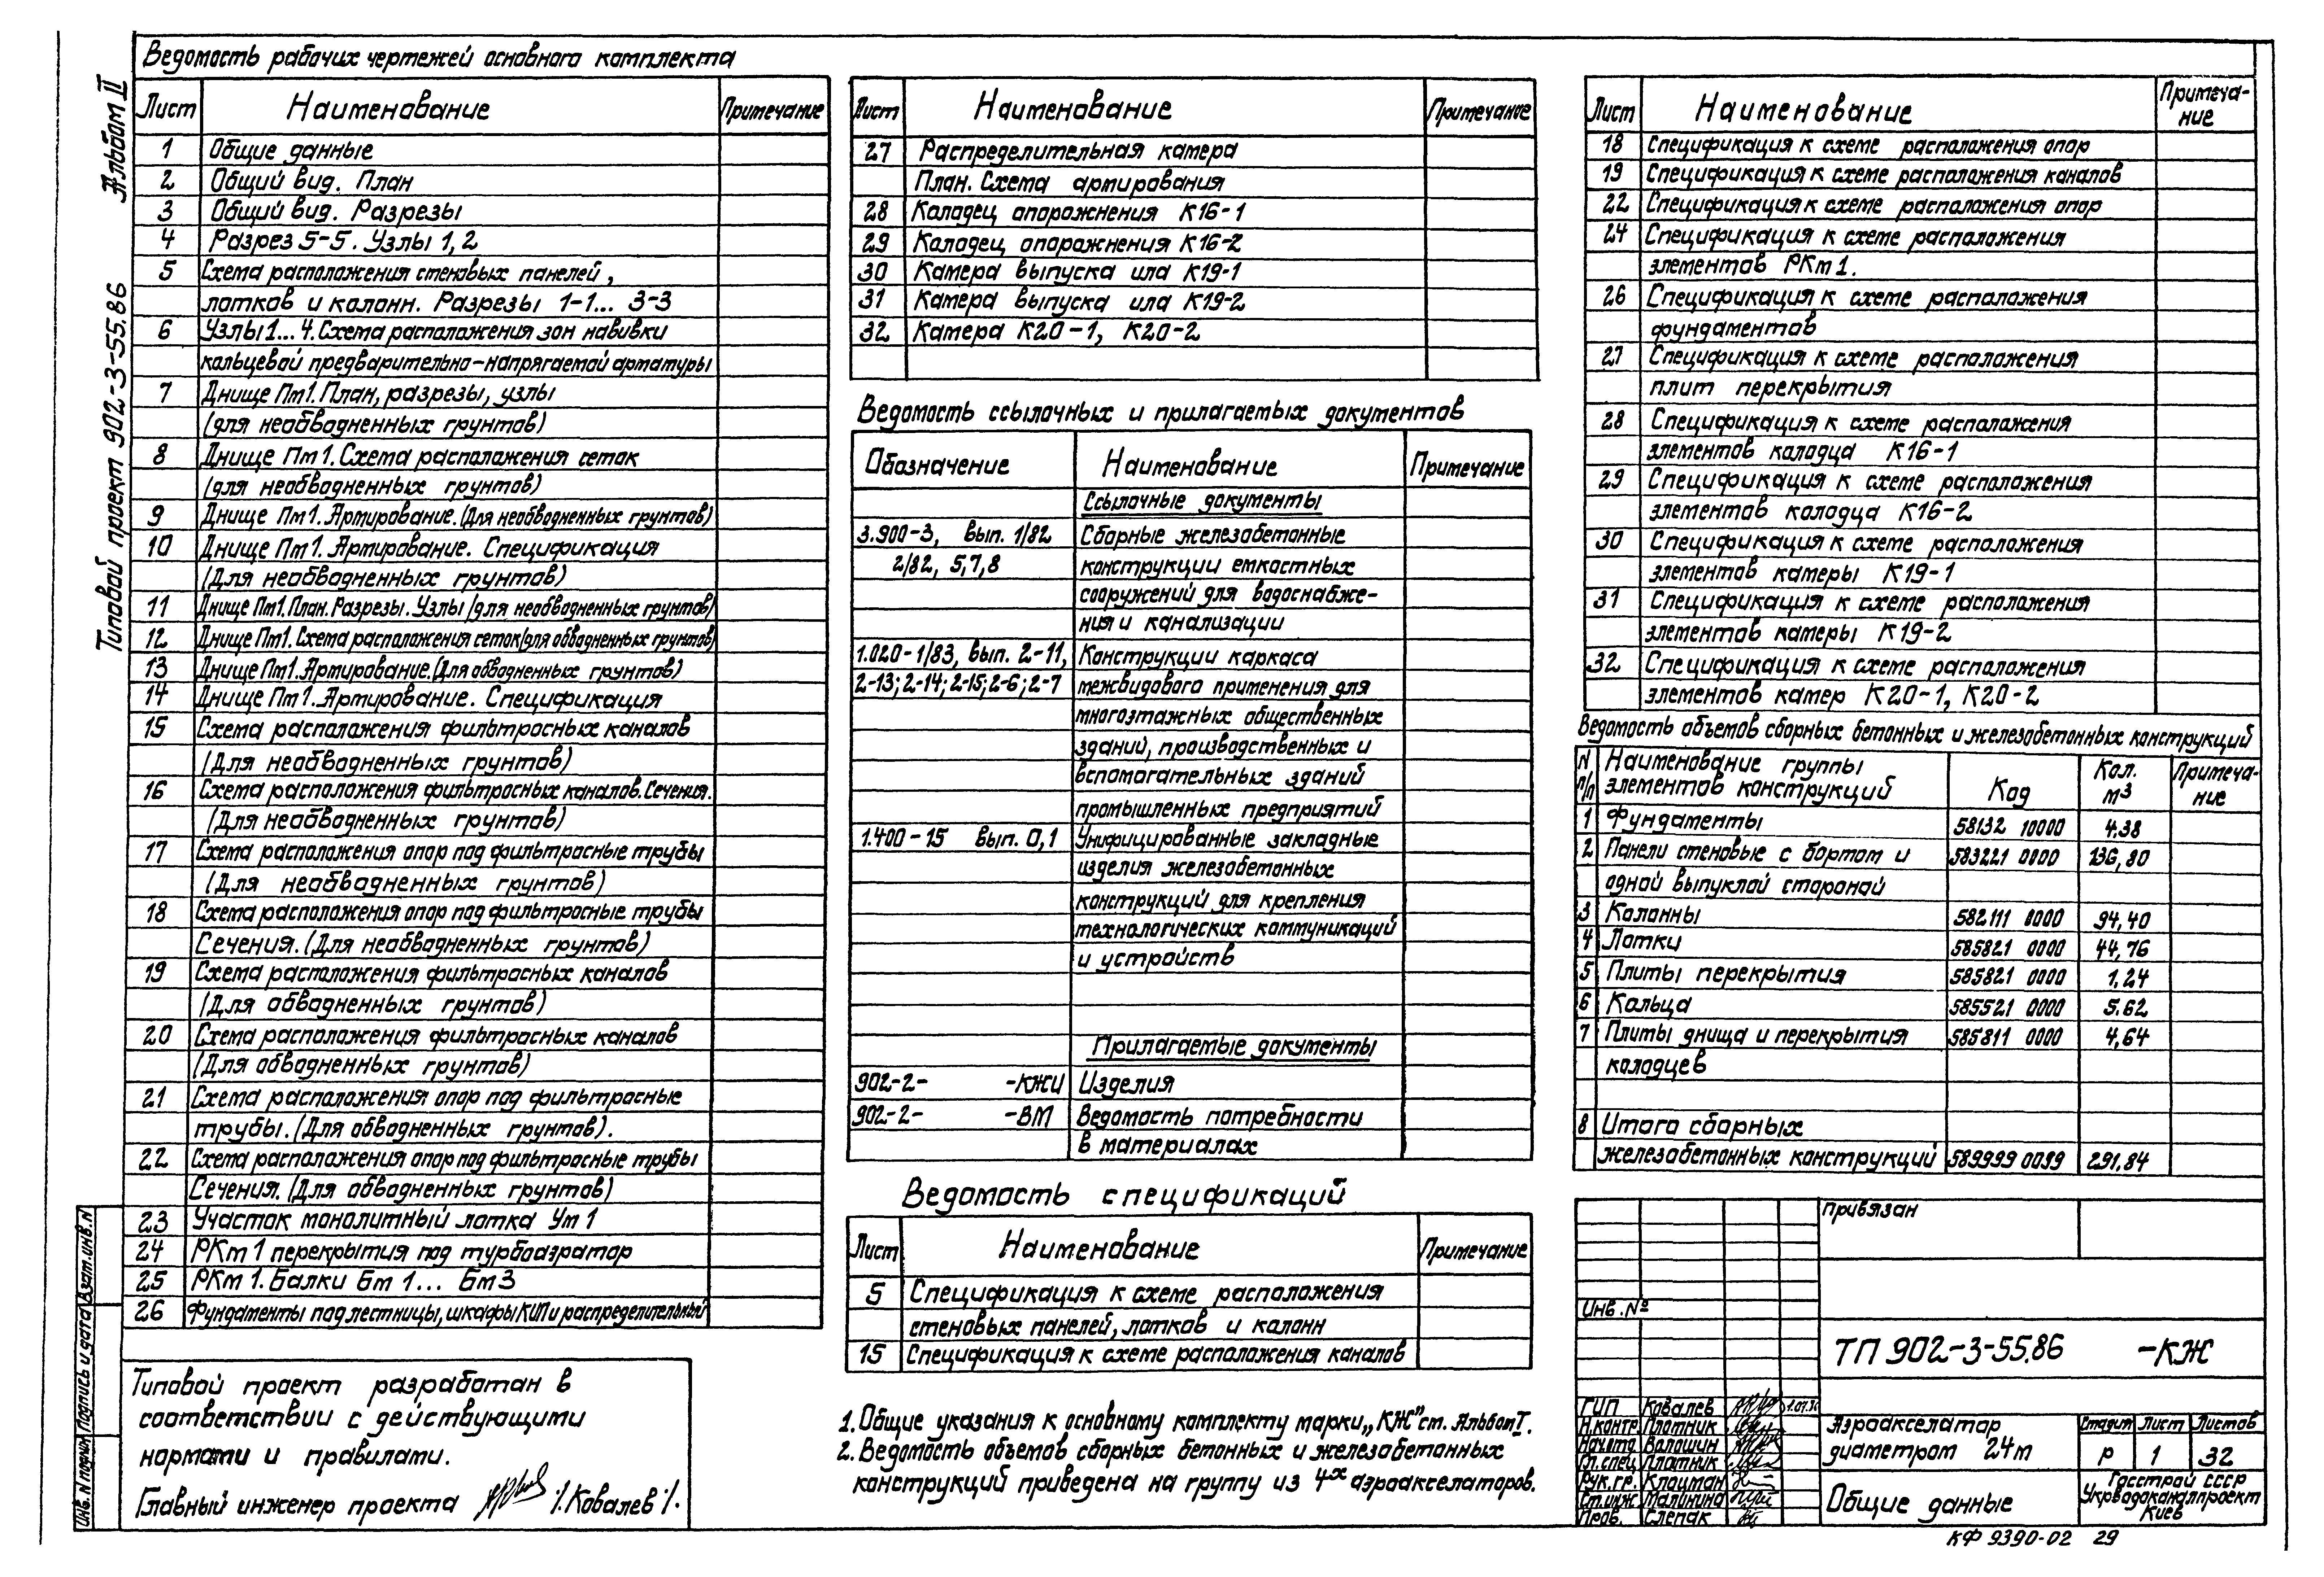 Альбом II
Типовой проект 902-3-55.86
Взам.инв.N
Подпись и дата
Инв.N подлин
Ведомость рабочих чертежей основного комплекта
Лист Наименование Примечание
1 Общие данные
2 Общий вид. План
3 Общий вид. Разрезы
4 Разрез 5-5. Узлы 1,2
5 Схема расположения стеновых панелей,
лотков и колонн. Разрезы 1-1... 3-3
6 Узлы 1... 4. Схема расположения зон навивки
кольцевой предварительно-напрягаемой арматуры
7 Днище Пм1. План, разрезы, узлы
(для необводненных грунтов)
8 Днище Пм1. Схема расположения сеток
(для необводненных грунтов)
9 Днище Пм1. Армирование. (Для необводненных грунтов)
10 Днище Пм1. Армирование. Спецификация
(Для необводненных грунтов)
11 Днище Пм1. План. Разрезы. Узлы (для необводненных грунтов)
12 Днище Пм1. Схема расположения сеток (для обводненных грунтов)
13 Днище Пм1. Армирование. (Для обводненных грунтов)
14 Днище Пм1. Армирование. Спецификация
15 Схема расположения фильтросных каналов
(Для необводненных грунтов)
16 Схема расположения фильтросных каналов. Сечения.
(Для необводненных грунтов)
17 Схема расположения опор под фильтросные трубы
(Для необводненных грунтов)
18 Схема расположения опор под фильтросные трубы
Сечения. (Для необводненных грунтов)
19 Схема расположения фильтросных каналов
(Для обводненных грунтов)
20 Схема расположения фильтросных каналов
(Для обводненных грунтов)
21 Схема расположения опор под фильтросные
трубы. (Для обводненных грунтов).
22 Схема расположения опор под фильтросные трубы
Сечения. (Для обводненных грунтов)
23 Участок монолитный лотка Ум 1
24 РКм 1 перекрытия под турбоаэратор
25 РКм 1. Балки Бм 1... Бм 3
26 Фундаменты под лестницы, шкафы КИП и распределительный
Типовой проект разработан в
соответствии с действующими
нормами и правилами.
Главный инженер проекта /Ковалев/.
Лист Наименование Примечание
27 Распределительная камера
План. Схема армирования
28 Колодец опорожнения К16-1
29 Колодец опорожнения К16-2
30 Камера выпуска ила К19-1
31 Камера выпуска ила К19-2
32 Камера К20-1, К20-2
Ведомость ссылочных и прилагаемых документов
Обозначение Наименование Примечание
Ссылочные документы
3.900-3, вып. 1/82 Сборные железобетонные
2/82, 5,7,8 конструкции емкостных
сооружений для водоснабже-
ния и канализации
1.020-1/83, вып. 2-11, Конструкции каркаса
2-13; 2-14; 2-15; 2-6; 2-7 межвидового применения для
многоэтажных общественных
зданий, производственных и
вспомогательных зданий
промышленных предприятий
1.400-15 вып. 0,1 Унифицированные закладные
изделия железобетонных
конструкций для крепления
технологических коммуникаций
и устройств
Прилагаемые документы
902-2- -КЖИ Изделия
902-2- -ВМ Ведомость потребности
в материалах
Ведомость спецификаций
Лист Наименование Примечание
5 Спецификация к схеме расположения
стеновых панелей, лотков и колонн
15 Спецификация к схеме расположения каналов
1. Общие указания к основному комплекту марки „КЖ" см. Альбом I.
2. Ведомость объемов сборных бетонных и железобетонных
конструкций приведена на группу из 4х аэроакселаторов.
Лист Наименование Примеча-
ние
18 Спецификация к схеме расположения опор
19 Спецификация к схеме расположения каналов
22 Спецификация к схеме расположения опор
24 Спецификация к схеме расположения
элементов РКм 1.
26 Спецификация к схеме расположения
фундаментов
27 Спецификация к схеме расположения
плит перекрытия
28 Спецификация к схеме расположения
элементов колодца К16-1
29 Спецификация к схеме расположения
элементов колодца К16-2
30 Спецификация к схеме расположения
элементов камеры К19-1
31 Спецификация к схеме расположения
элементов камеры К19-2
32 Спецификация к схеме расположения
элементов камер К20-1, К20-2
Ведомость объемов сборных бетонных и железобетонных конструкций
N п/п Наименование группы элементов конструкций Код Кол. м3 Примеча-ние
1 Фундаменты 58132 10000 4,38
2 Панели стеновые с бортом и 583221 0000 136,80
одной выпуклой стороной
3 Колонны 582111 0000 94,40
4 Лотки 585821 0000 44,76
5 Плиты перекрытия 585821 0000 1,24
6 Кольца 585521 0000 5.62
7 Плиты днища и перекрытия 585811 0000 4,64
колодцев
8 Итого сборных
железобетонных конструкций 589999 0099 291,84
Привязан
Инв. №
ТП 902-3-55.86 -КЖ
ГИП Ковалев
Н.контр. Плотник
Нач.отд Волошин
Гл.спец Плотник
Рук.гр. Клоцман
Ст.инж. Малинина
Пров. Слепак
Аэроакселатор
диаметром 24м
Стадия Лист Листов
Р 1 32
Общие данные
Госстрой СССР
Укрводоканалпроект
Киев
КФ 9390-02 29